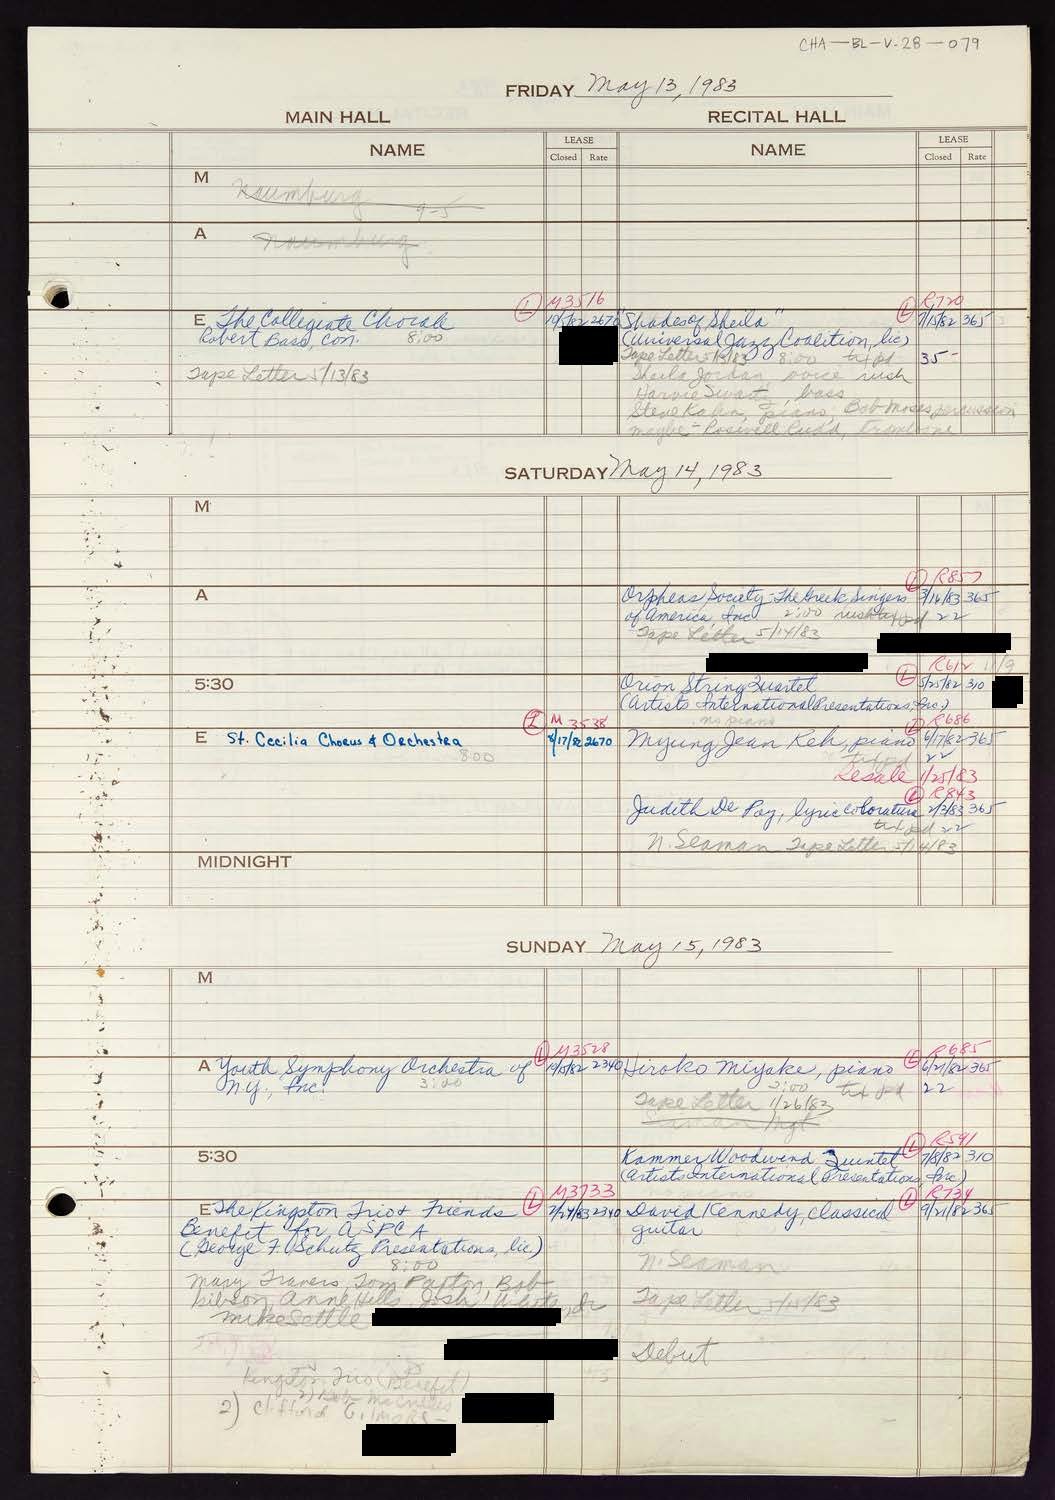 CHA-BL-V-28-079
FRIDAY May 13, 1983
MAIN HALL RECITAL HALL
NAME LEASE Closed Rate NAME LEASE Closed Rate
M Naumburg 9-5
A Naumburg
L M3516 L R720
E The Collegiate Chorale 2670 "Shades of Sheila" 7/15/82 365
Robert Bass, con. 8:00 (Universal Jazz Coalition, Inc)
Tape Letter 5/13/83 8:00 txt pd 35-
Tape Letter 5/13/83 Sheila Jordan, voice rush
Harvie Swartz, bass
Steve Kuhn, piano, Bob Moses percussion
maybe - Roswell Rudd, trombone
SATURDAY May 14, 1983
M
L R857
A Orpheas Society-The Greek Singers 3/14/83 365
of America, Inc. 2:00 rush txt pd 22
Tape Letter 5/14/83
L R612 11/9
5:30 Orion String Quartet 5/25/82 310
(Artists International Presentations, Inc.)
no piano
L M 3538 L R686
E St. Cecilia Chorus & Orchestra 8/17/82 2670 Myung Jean Reh, piano 6/17/82 365
8:00 txt pd 22
Resale 1/25/83
L R843
Judith De Poy, lyric coloratura 2/3/83 365
txt pd 22
N. Seaman Tape Letter 5/14/83
MIDNIGHT
SUNDAY May 15, 1983
M
L M3528 L R685
A Youth Symphony Orchestra of 2340 Hiroko Miyake, piano 6/21/82 365
N.Y., Inc. 3:00 2:00 txt pd 22
Tape Letter 1/26/83
Seaman Mgt
L R591
5:30 Kammer Woodwind Quintet 7/8/82 310
(Artists International Presentations, Inc)
L M3733 L R734
E The Kingston Trio & Friends 2/24/83 2340 David Kennedy, classical 9/21/82 365
Benefit for ASPCA guitar
(George F. Schutz Presentations, Inc)
8:00 N. Seaman
Mary Travers, Tom Paxton, Bob
Gibson, Anne Hills, Josh White Jr Tape Letter 5/15/83
Mike Settle
Debut
Kingston Trio (Benefit)
2) Clifford